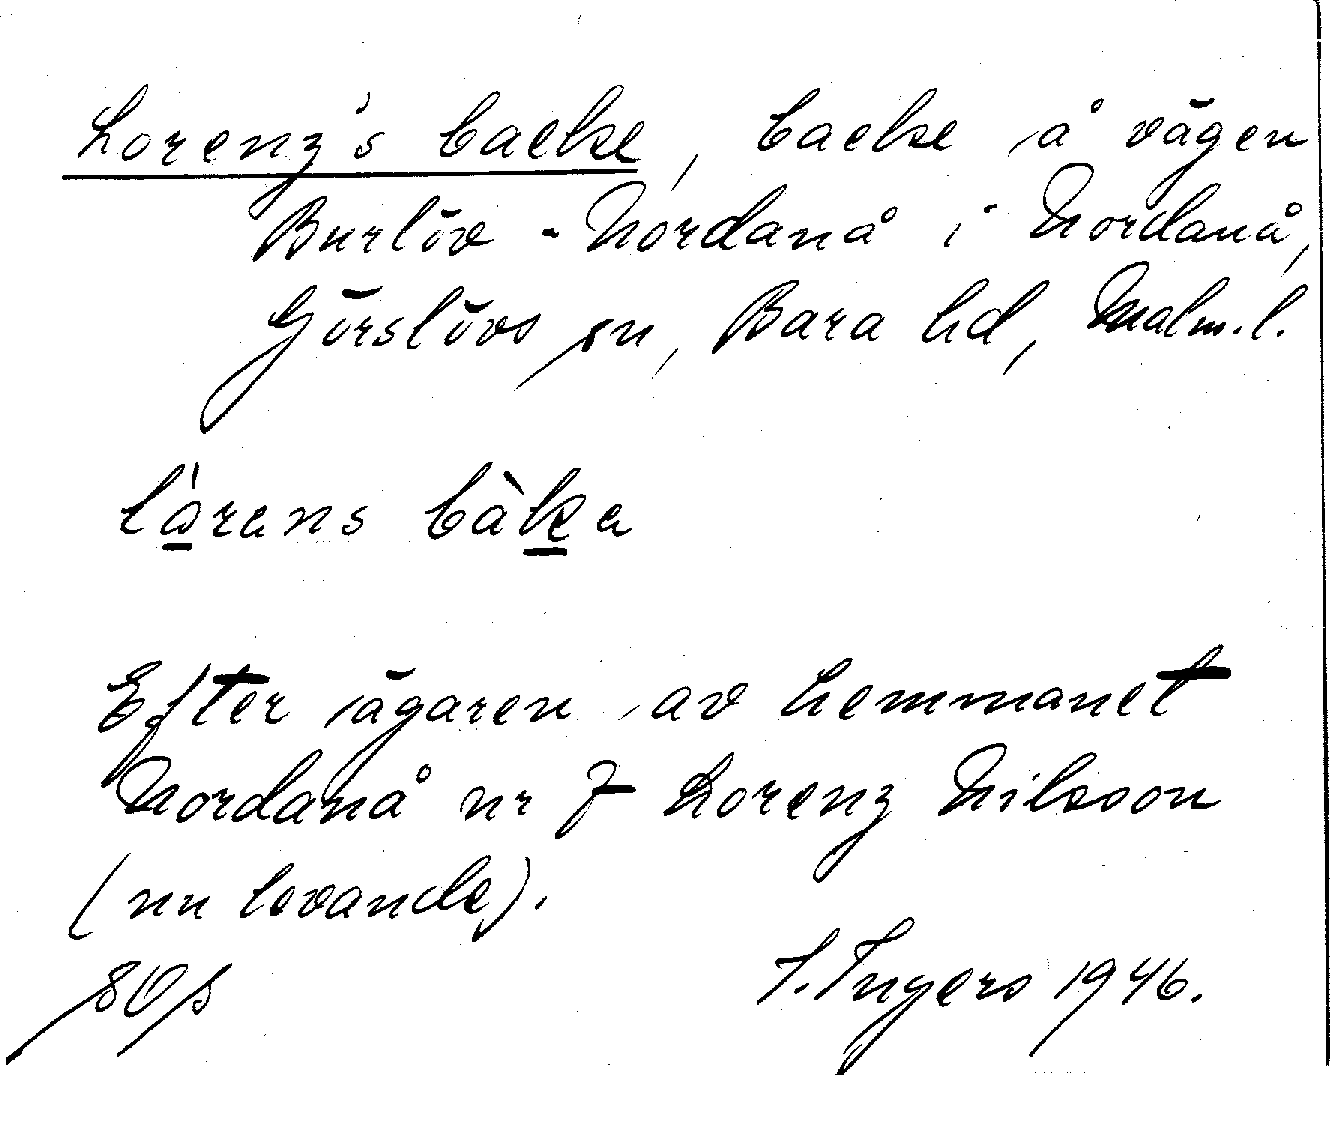 Lorenz's backe, backe å vägen
Burlöv - Nordanå i Nordanå,
Görslövs sn, Bara hd, Malm.l.
lå̀rans bàka
Efter ägaren av hemmanet
Nordanå nr 7 Lorenz Nilsson
(nu levande).
I. Ingers 1946.